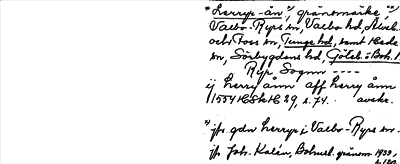 *Herryr-ån¹⁾, gränsmärke, ²⁾
Valbo-Ryrs sn, Valbo hd, Älvsb.
och Foss sn, Tunge hd, samt Hede
sn, Sörbygdens hd, Göteb o Boh. l.
Ryr Sognn ----
ij herry ånn aff herry ånn
1554 HSkH 29, s. 74. avskr.
¹⁾ jfr gdn Herryr i Valbo-Ryrs sn.
jfr Joh. Kalén, Bohusl. gränsm. 1933,